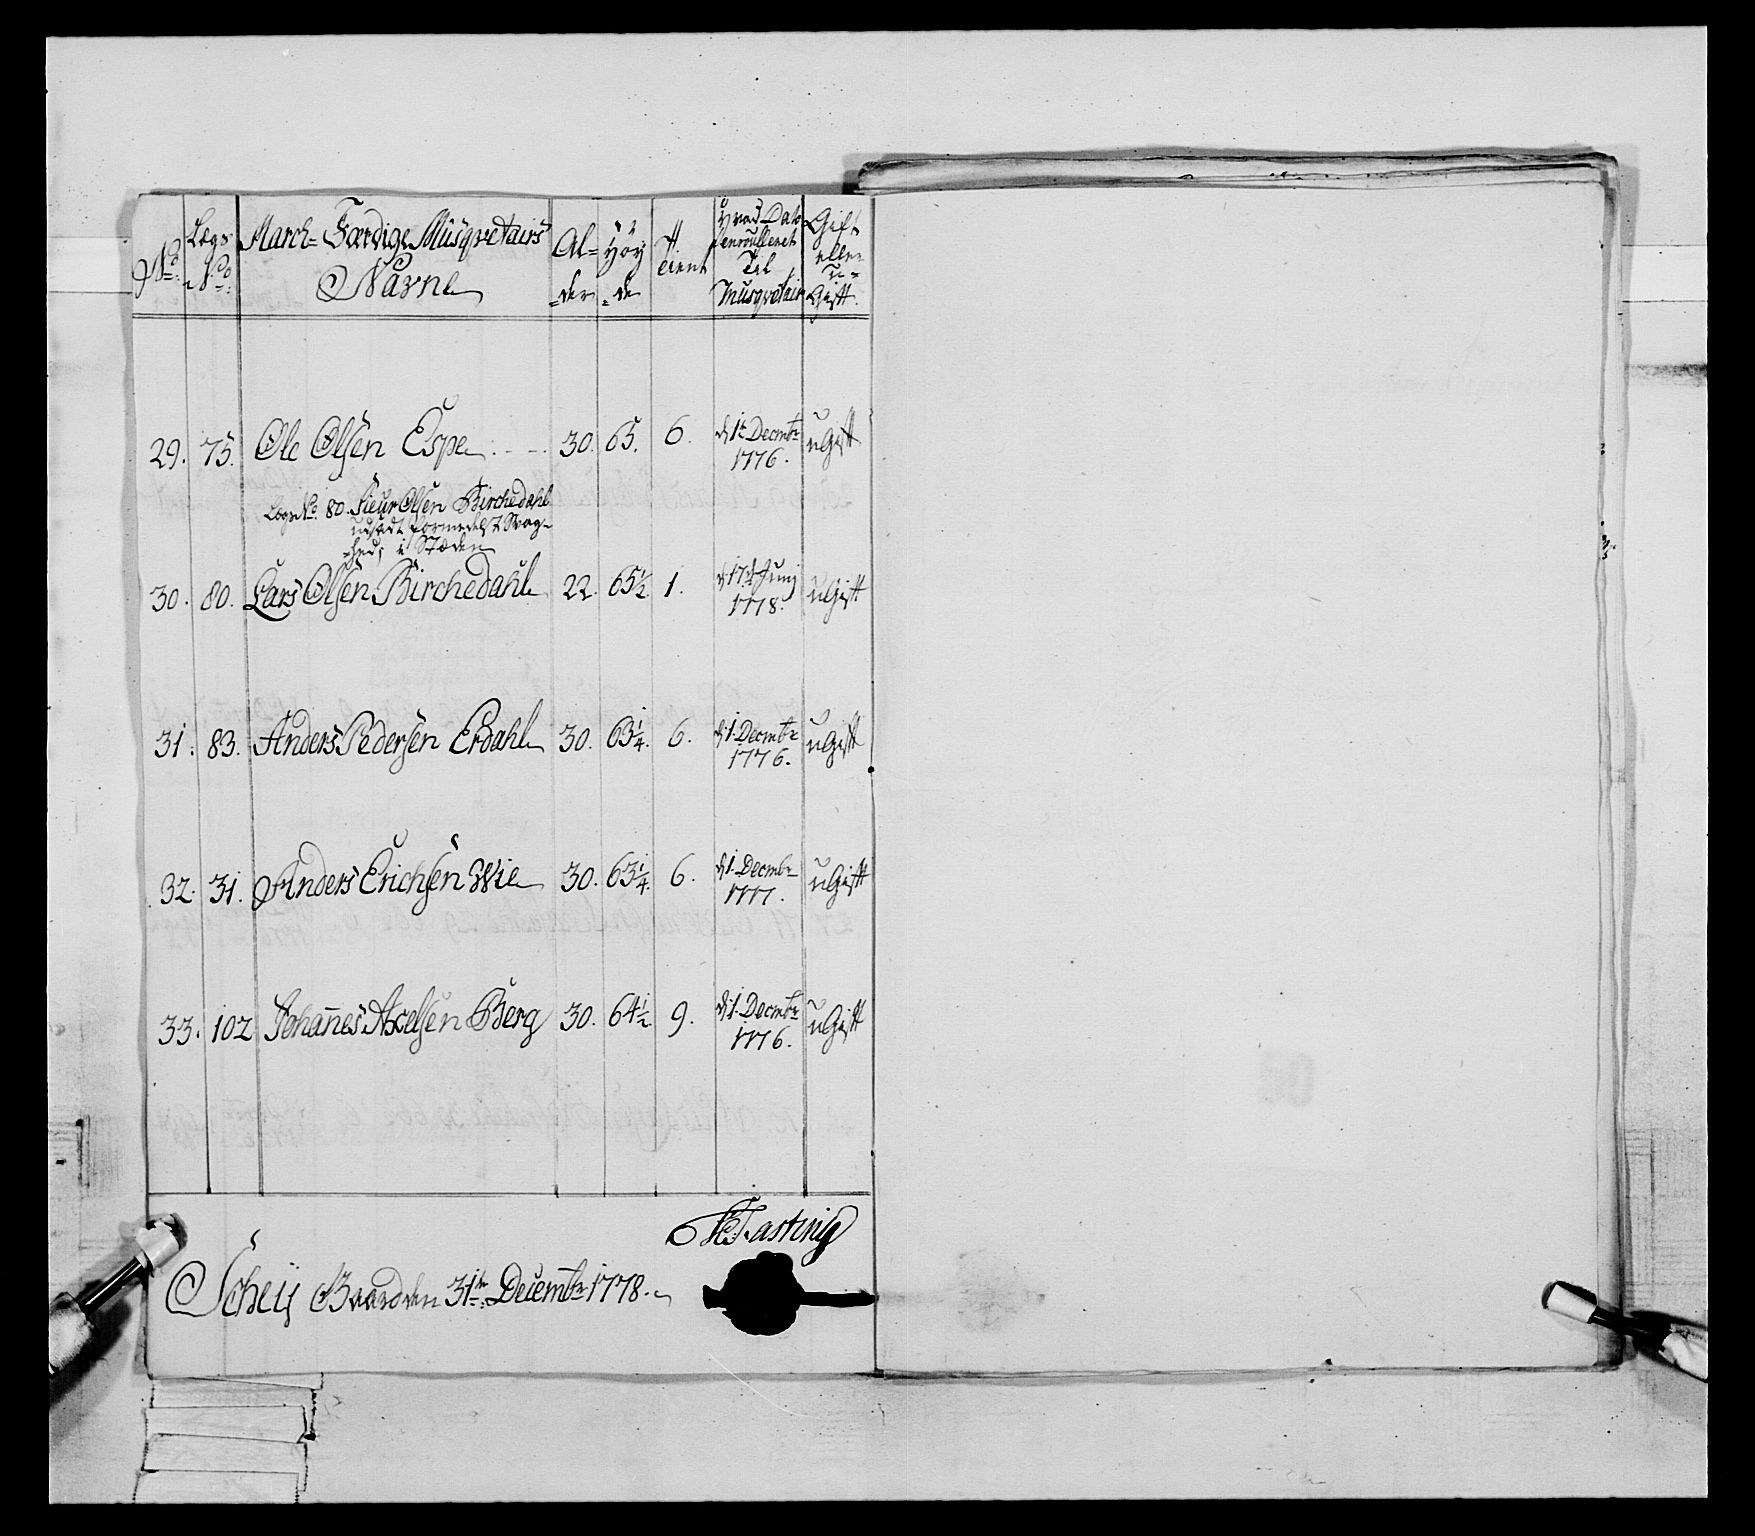 No. Lægs No. March- Færdige Musqvetairs Navne Al-der Höy-de A. tient Hvad Dato Enroulleret Til Musqvetair Gift eller u-Gift.
29. 75. Ole Olsen Espe 30. 65. 6. d 1te Decmbr 1776. uGift
Lægs No. 80. Sieur Olsen Birchedahl
udsadt formedelst Svag-
-hed, i Stæden
30. 80. Lars Olsen Birchedahl 22. 65½ 1. d 17de Junj 1778. uGift
31. 83. Anders Pedersen Erdahl 30. 63¼. 6. d 1. Decmbr 1776. uGift
32. 31. Anders Erichsen Wie 30. 63¼. 6. d 1. Decmbr 1777. uGift
33. 102 Johannes Axelsen Berg 30. 64½ 9. d 1. Decmbr 1776. uGift
Fasting
Scheij Gaard den 31te Decembr 1778.